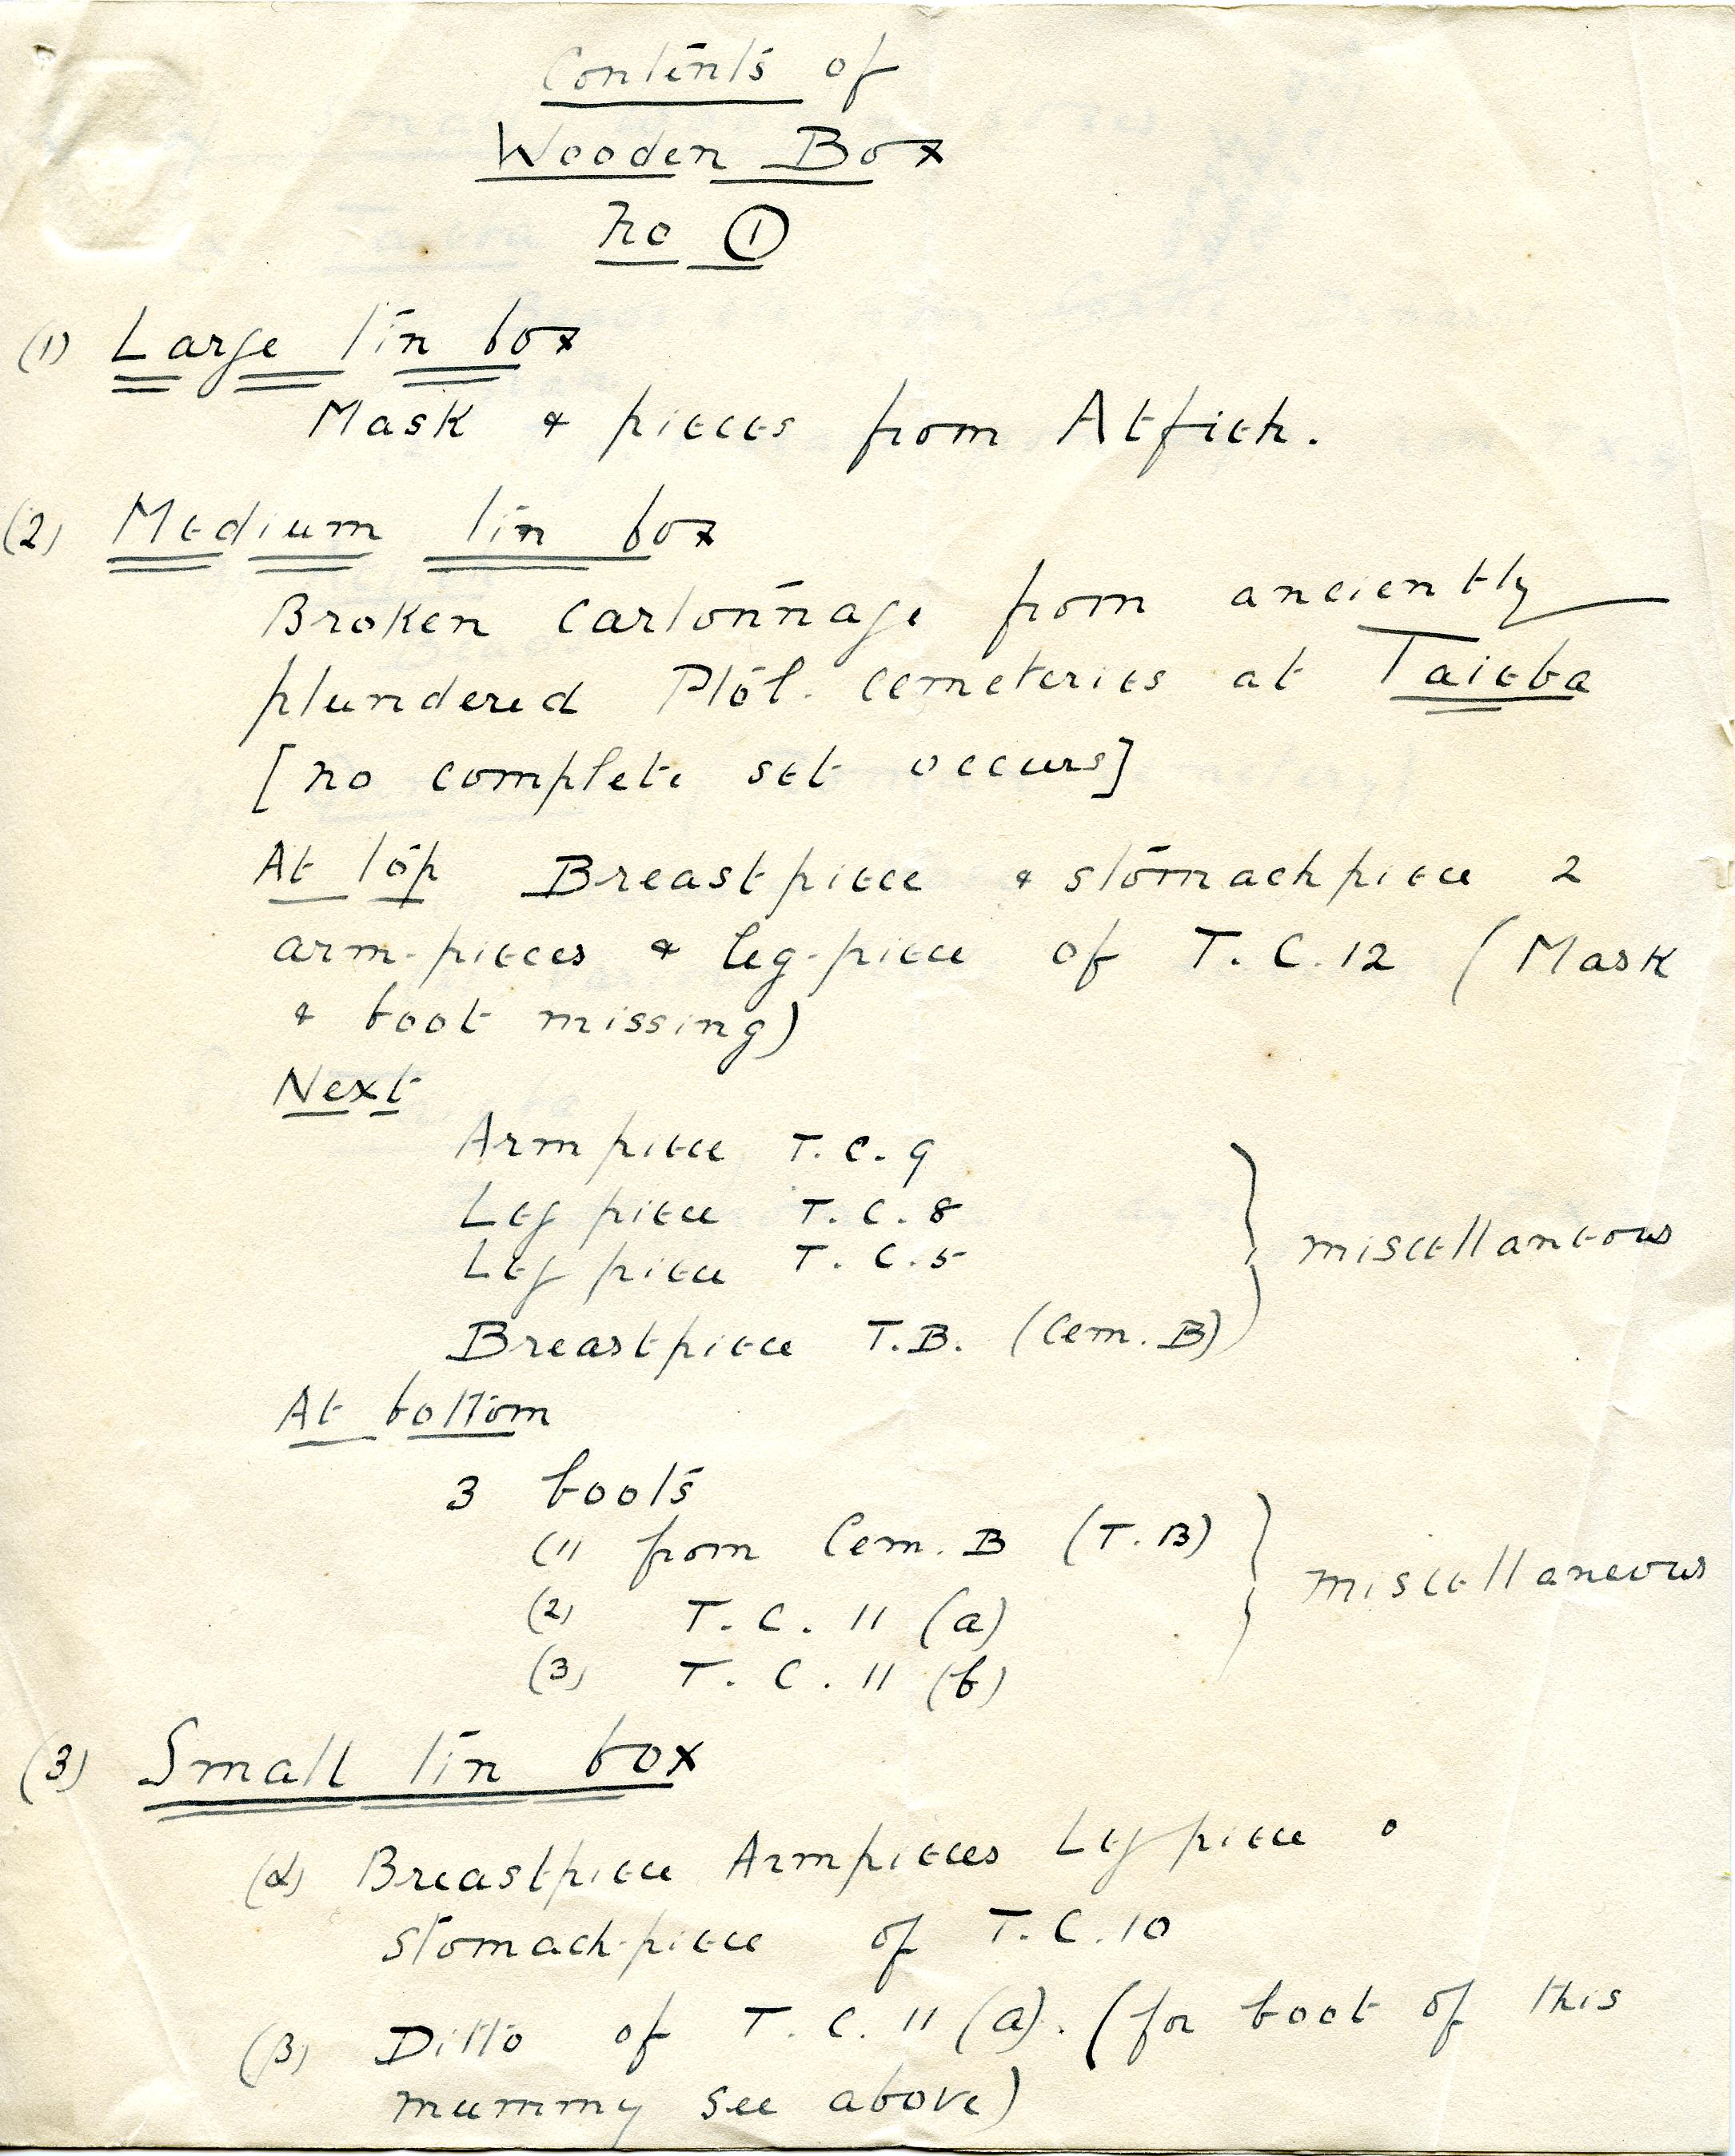 Contents of
Wooden Box
No ①
(1) Large tin box
Mask & pieces from Atfieh.
(2) Medium tin box
Broken cartonnage from anciently
plundered Ptol. cemeteries at Taieba
[no complete set occurs]
At top Breastpiece & stomachpiece 2
arm-pieces & leg-piece of T.C.12 (Mask
& boot missing)
Next
Armpiece T.C.9
Leg piece T.C.8
Leg piece T.C.5
miscellaneous
Breastpiece T.B. (Cem. B)
At bottom
3 boots
(1) from Cem. B (T.B)
(2) T.C. 11 (a)
miscellaneous
(3) T.C. 11 (b)
(3) Small tin box
(α) Breastpiece Armpieces Leg piece &
stomach-piece of T.C.10
(β) Ditto of T.C. 11 (a). (for boot of this
mummy see above)